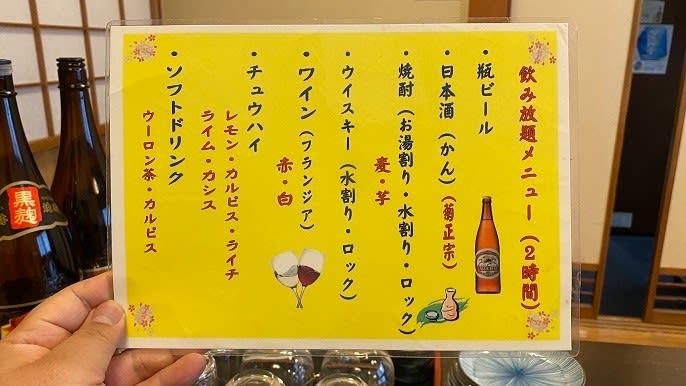 飲み放題メニュー(2時間)
・瓶ビール
・日本酒(かん)(菊正宗)
・焼酎(お湯割り・水割り・ロック)
麦・芋
・ウイスキー(水割り・ロック)
・ワイン(フランジア)
赤・白
・チュウハイ
レモン・カルピス・ライチ
ライム・カシス
・ソフトドリンク
ウーロン茶・カルピス
黒麹